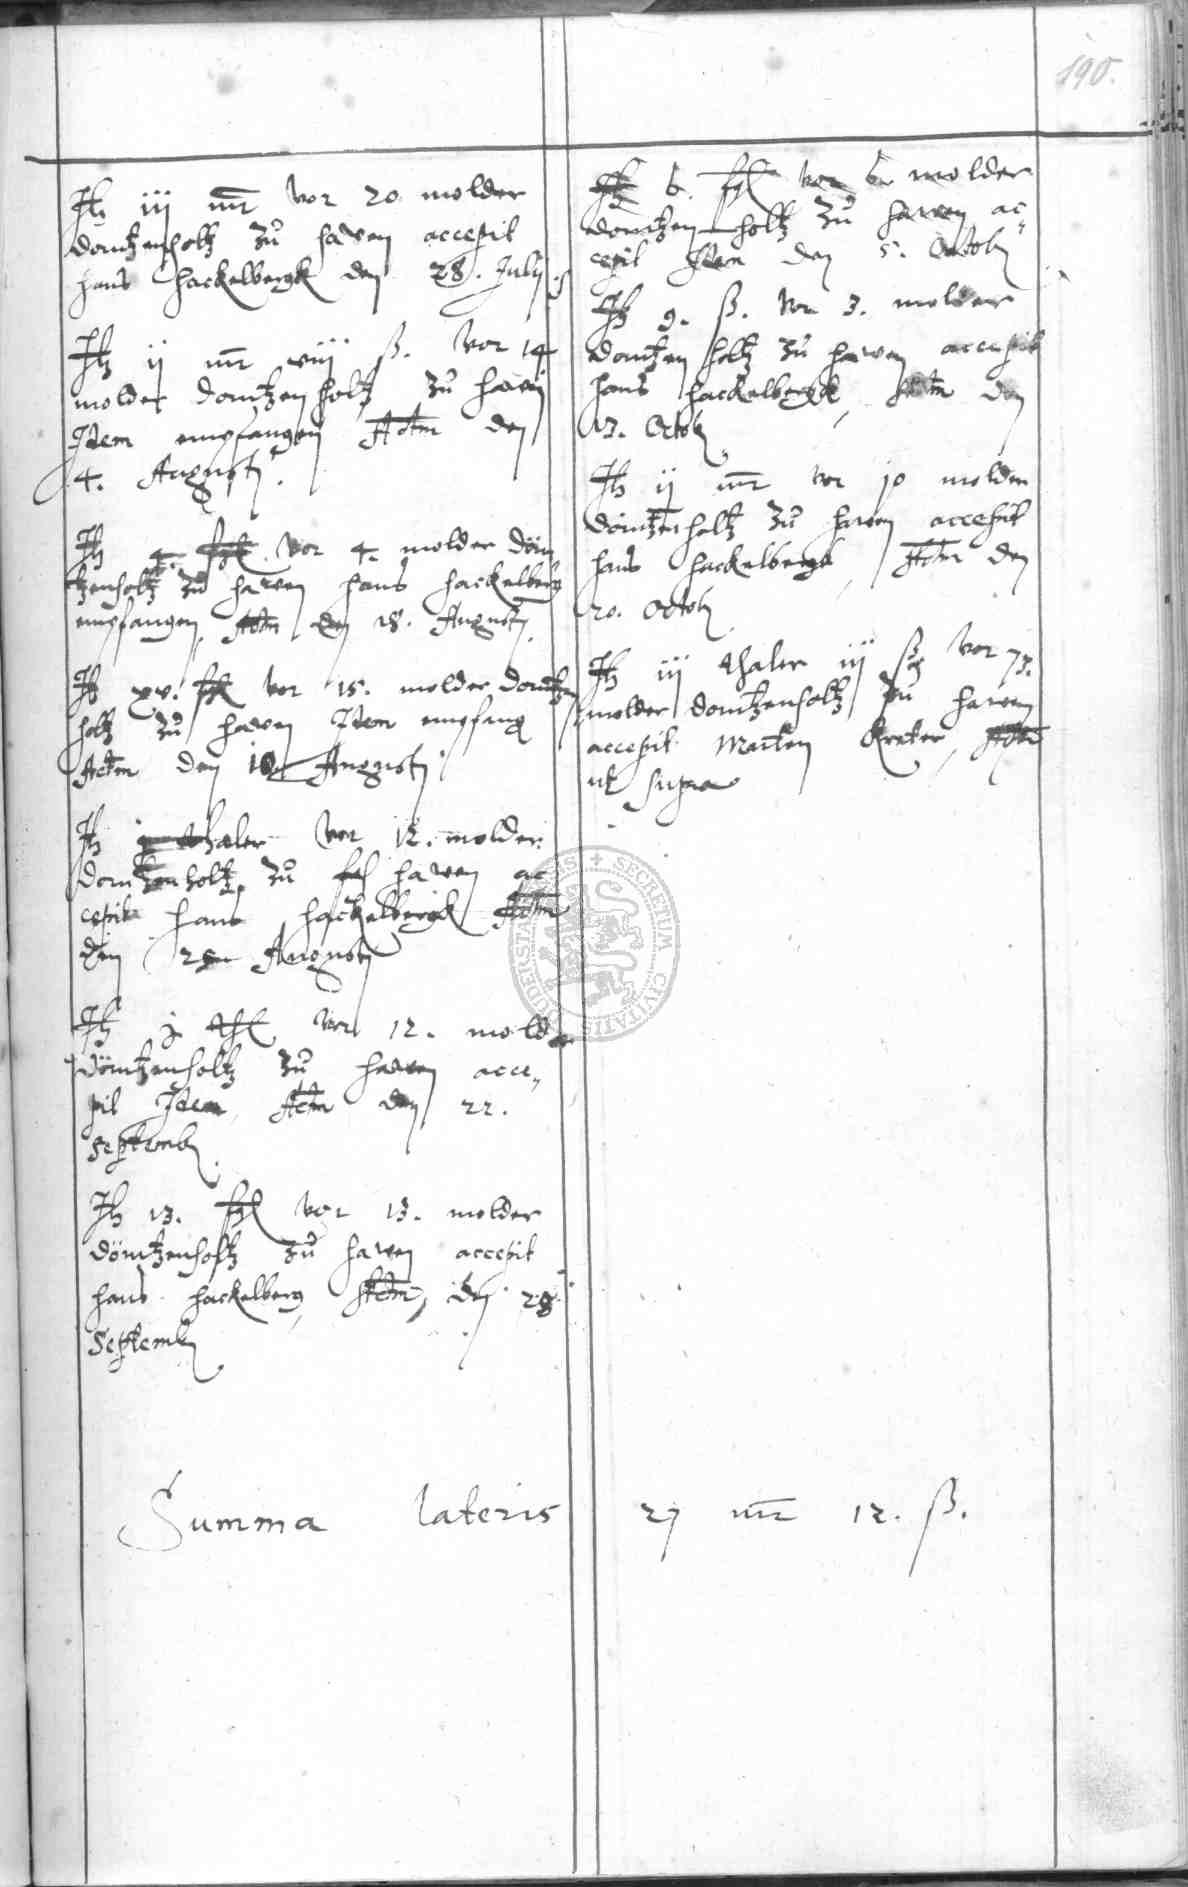 190.
Jt iij mr vor 20 molder
domtzenholtz zu hawen accepit
hans hackelbergk den 28. Julij
Jt ij mr viij ß. vor 14
molder domtzenholtz zu hawen
Idem empfangen Actm den
4. Augusti
Jt 4. vor 4. molder döm
tzenholtz zu hawen hans hackelberg
empfangen, Actm den 18. Augusti
Jt xv. vor 15. molder domtzen
holtz zu hawen Idem empfang
Actm den 18 Augusti
Jt j thaler vor 12. molder
domtzenholtz zu hawen ac
cepit hans hackelbergk Actm
den Augusti
Jt j thl vor 12. molder
dömtzenholtz zu hawen acce„
pit Idem, Actm den 22.
Septemb
Jt 13. vor 13. molder
dömtzenholtz zu hawen accepit
hans hackelberg, Actm, den 28
Septemb
Jt 6. vor 6. molder
domtzenholtz zu hawen ac„
cepit Idem den 5. Octob
Jt 9. ß. vor 3. molder
domtzenholtz zu hawen accepit
hans hackelbergk, Actm den
13. Octob
Jt ij mr vor 10 molder
dömtzenholtz zu hawen accepit
hans hackelbergk, Actm den
20. Octob
Jt iij thaler iij ß vor
molder domtzenholtz zu hawen
accepit Marten Kreter, Actm
ut supra
Summa lateris 27 mr 12. ß.
SECRETUM CIVITATIS DUDERSTADENSIS